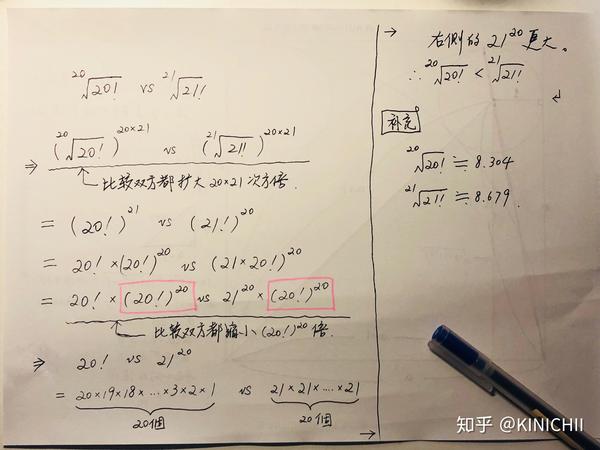 ²⁰√20! vs ²¹√21!
⇒ (²⁰√20!)²⁰ˣ²¹ vs (²¹√21!)²⁰ˣ²¹
比较双方都扩大20×21次方倍.
= (20!)²¹ vs (21!)²⁰
= 20!×(20!)²⁰ vs (21×20!)²⁰
= 20!×(20!)²⁰ vs 21²⁰×(20!)²⁰
比较双方都缩小(20!)²⁰倍.
⇒ 20! vs 21²⁰
= 20×19×18×…×3×2×1 vs 21×21×…×21
20個 20個
→
→ 右侧的21²⁰更大。
∴ ²⁰√20! < ²¹√21!
补充
²⁰√20! ≒ 8.304
²¹√21! ≒ 8.679.
知乎 @KINICHII